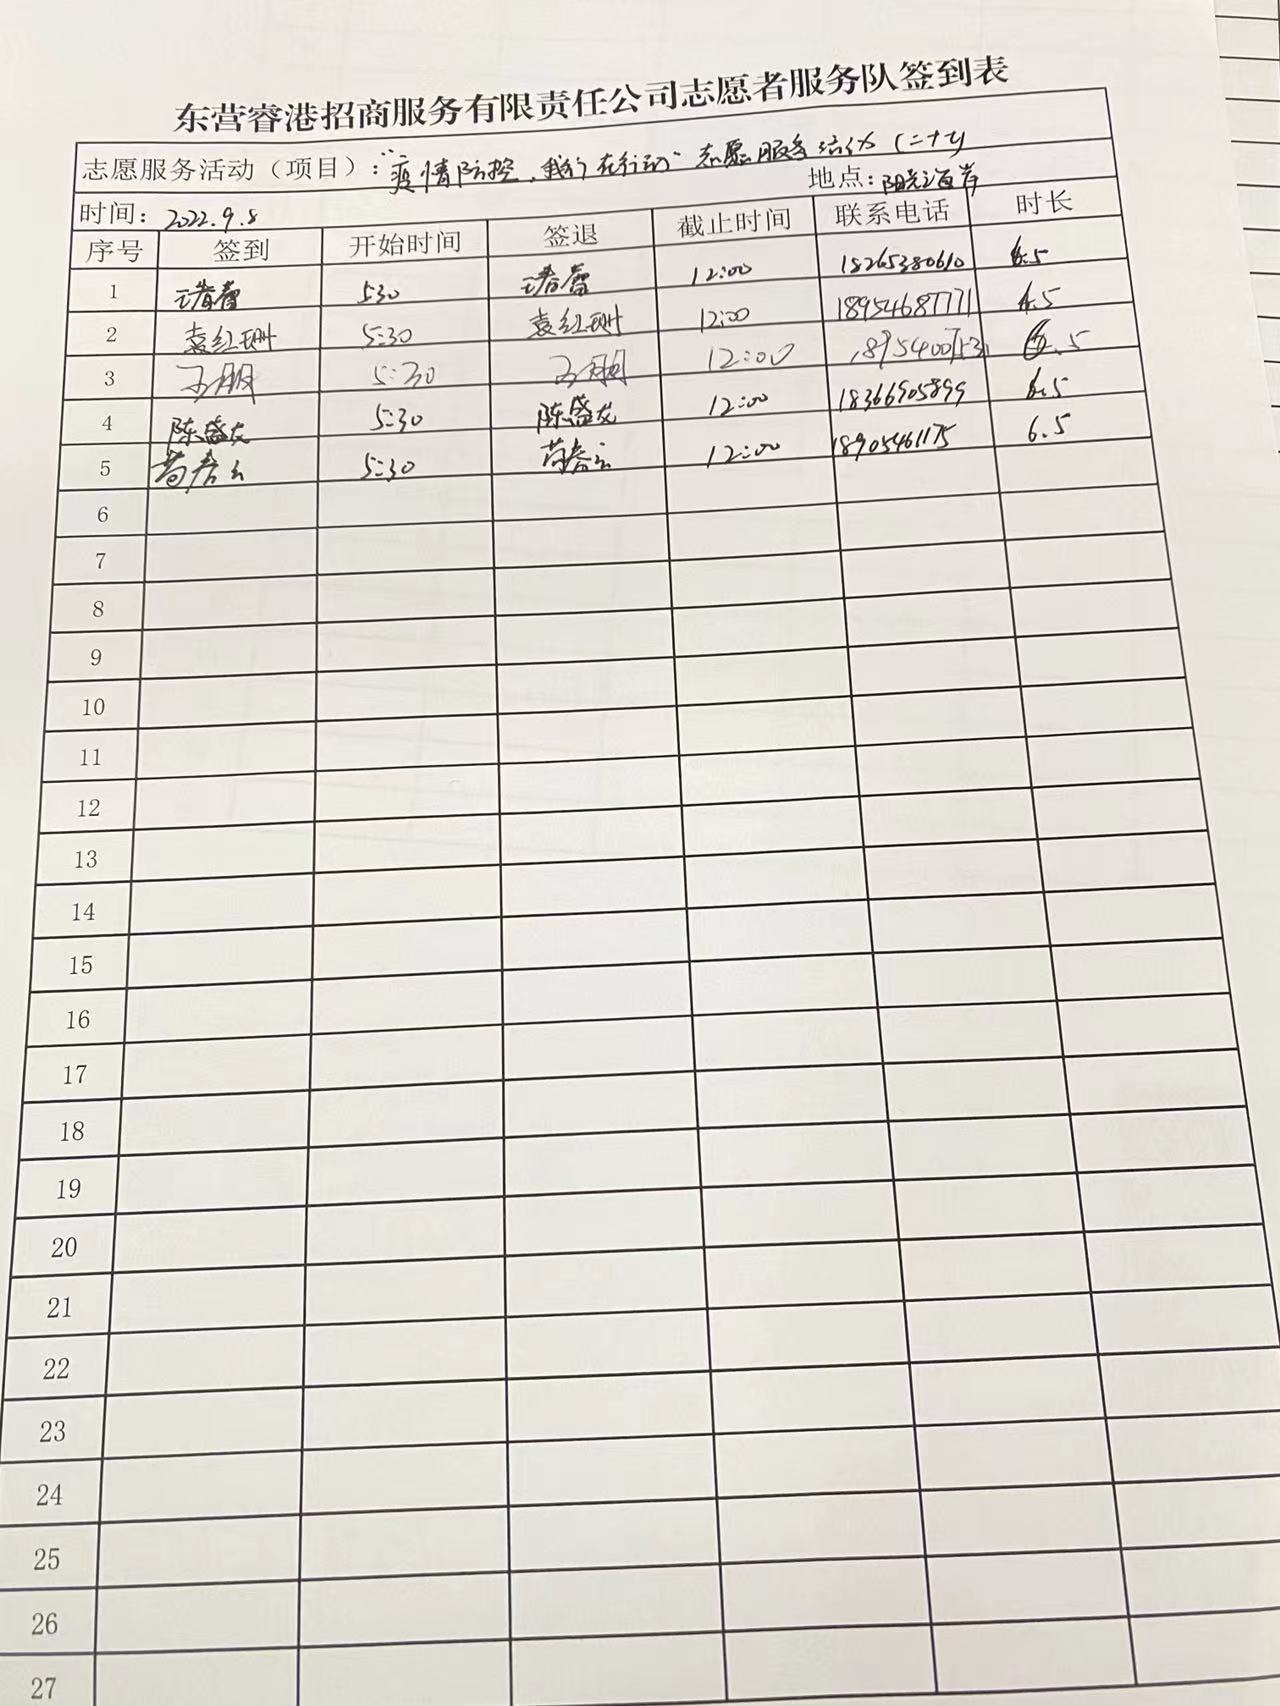 东营睿港招商服务有限责任公司志愿者服务队签到表
志愿服务活动（项目）："疫情防控，我们在行动"志愿服务活动（二十七）
时间：2022.9.8 地点：阳光海岸
序号 签到 开始时间 签退 截止时间 联系电话 时长
1 5:30 12:00 18265380610 6.5
2 袁红珊 5:30 袁红珊 12:00 18954687771 6.5
3 5:30 12:00 6.5
4 陈盛龙 5:30 陈盛龙 12:00 18366905899 6.5
5 苟春云 5:30 苟春云 12:00 18905461175 6.5
6
7
8
9
10
11
12
13
14
15
16
17
18
19
20
21
22
23
24
25
26
27